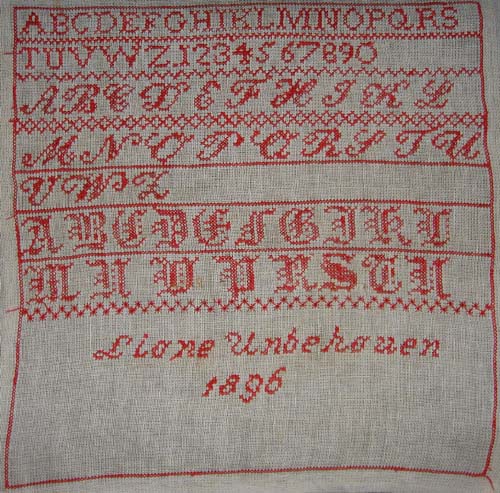 ABCDEFGHIKLMNOPQRS
TUVWZ1234567890
ABCDEFHIKL
MNOPQRSTU
VWZ
ABCDEFGIKL
MNOPRSTU
Liane Unbehauen
1896